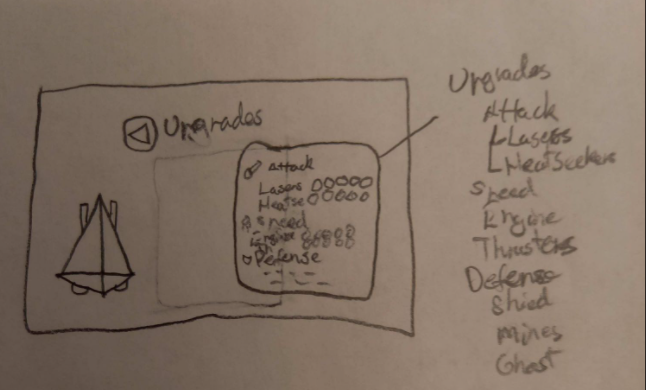 Upgrades
Attack
Lasers
Heatse
Speed
Engine
Defense
Upgrades
Attack
Lasers
Heatseekers
Speed
Engine
Thrusters
Defense
Shied
Mines
Ghost